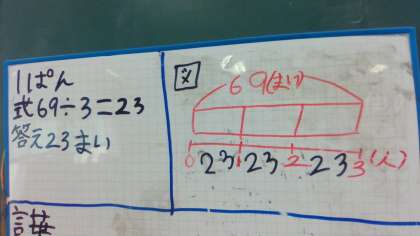 11ぱん
式69÷3=23
答え23まい
図
69(まい)
23 23 23
0 1 2 3(人)
言葉